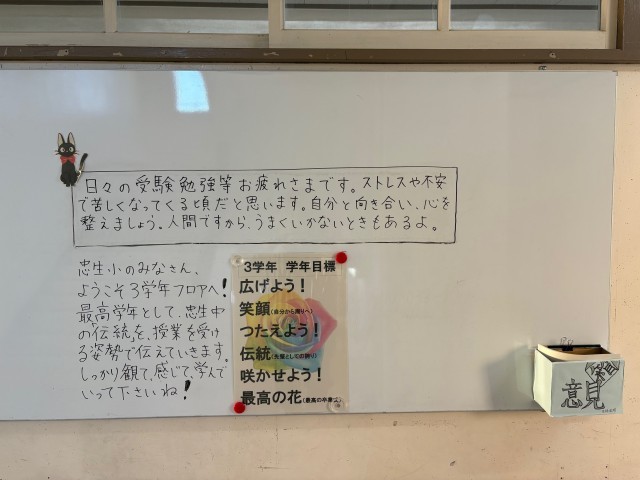 日々の受験勉強等お疲れさまです。ストレスや不安
で苦しくなってくる頃だと思います。自分と向き合い、心を
整えましょう。人間ですから、うまくいかないときもあるよ。
忠生小のみなさん、
ようこそ3学年フロアへ!
最高学年として、忠生中
の「伝統」を、授業を受け
る姿勢で伝えていきます。
しっかり観て、感じて、学んで
いって下さいね!
3学年 学年目標
広げよう!
笑顔(自分から周りへ)
つたえよう!
伝統(先輩としての誇り)
咲かせよう!
最高の花
意見